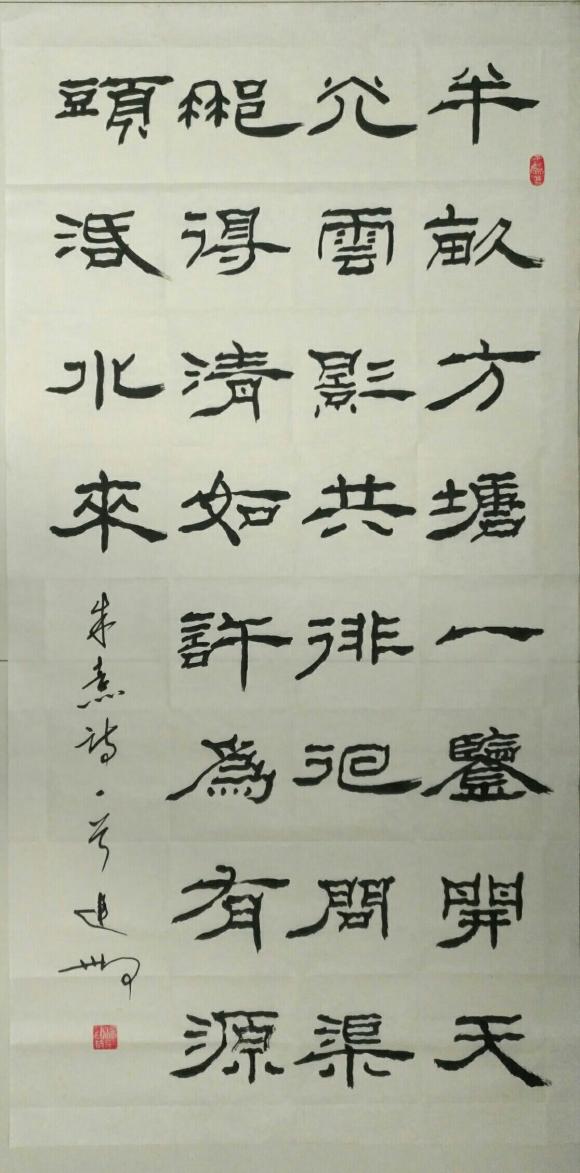 半畝方塘一鑒開天
光雲影共徘徊問渠
那得清如許為有源
頭活水來
朱熹詩一首